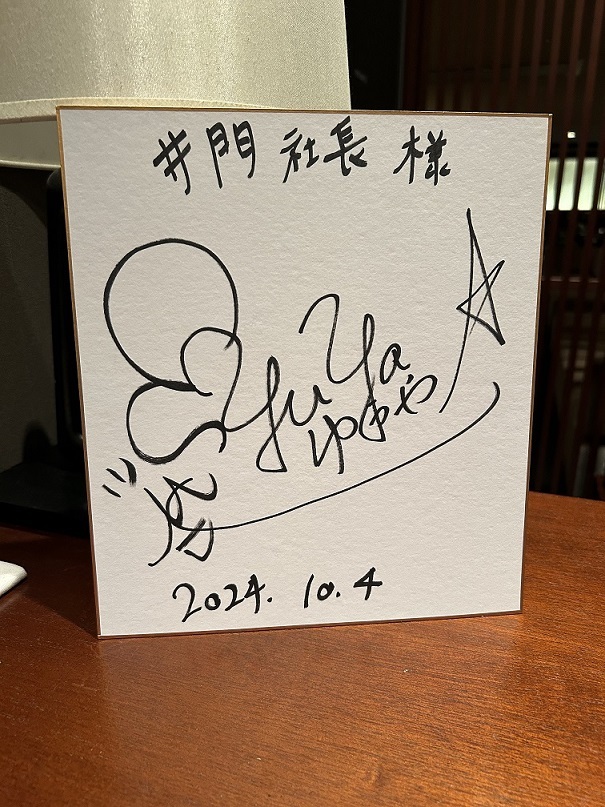 井門 社長 様
YuYa
ゆあや
2024. 10. 4